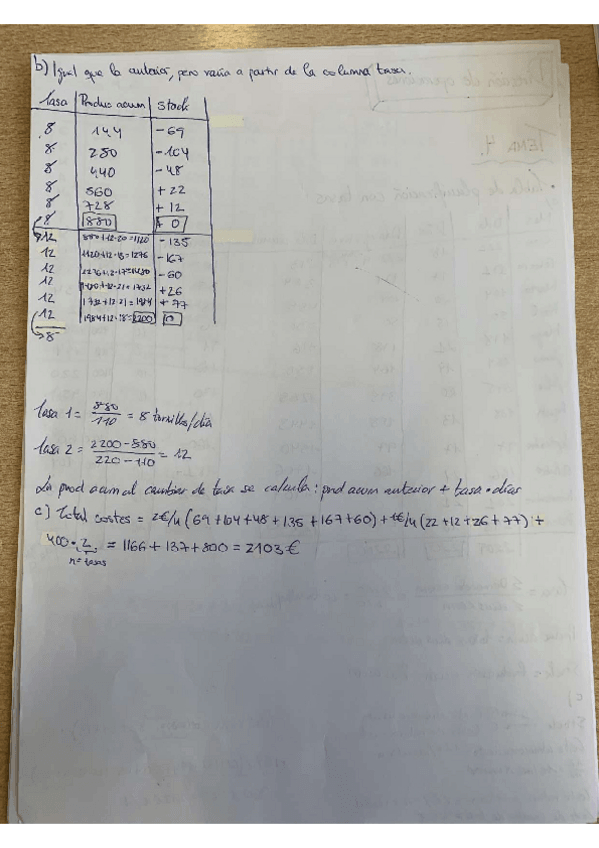 b) Igual que la anterior, pero varía a partir de la columna tasa.
tasa Produc acum Stock
8 144 -69
8 280 -104
8 440 -48
8 560 +22
8 728 +12
8 880 + 0
12 880+12·20=1120 -135
12 -167
12 -60
12 +26
12 +77
12 1984+12·18=2200 0
8
tasa 1 = 880/110 = 8 tornillos/día
tasa 2 = 2200-880/220-110 = 12
La prod acum al cambiar de tasa se calcula: prod acum anterior + tasa · días
c) Total costes = 2€/u (69+104+48+135+167+60) + 1€/u (22+12+26+77) +
400 · 2 = 1166+137+800 = 2103€
n= tasas